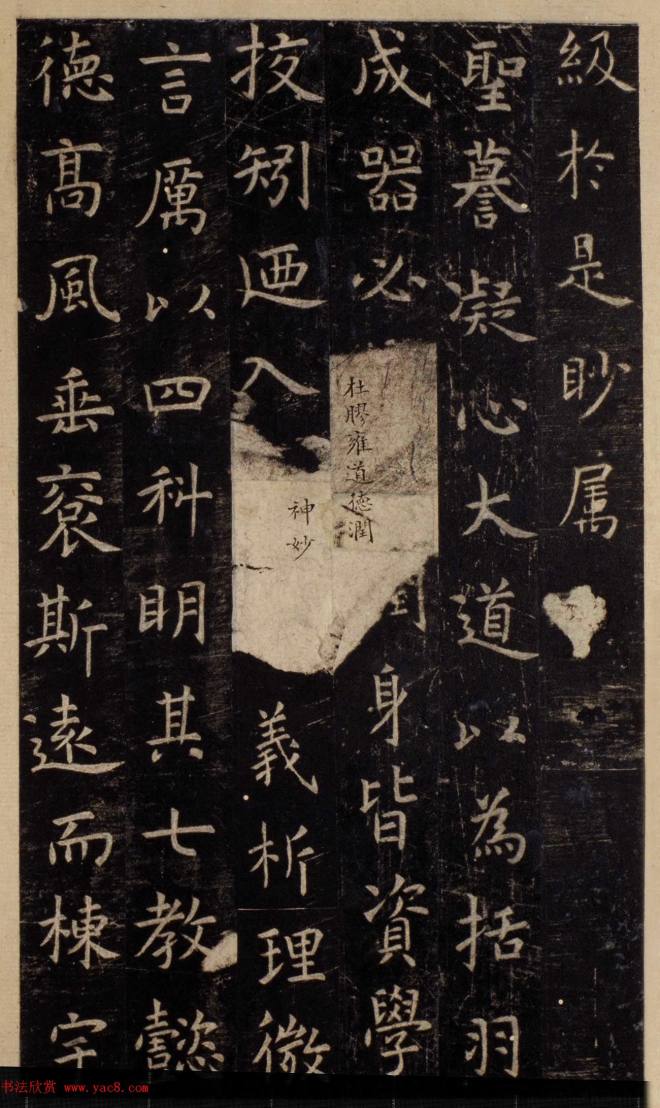 級於是眇属
聖謩凝心大道以為括羽
成器必杜膠雍道德潤身皆資學
挍矧迺入神妙義析理微
言厲以四科明其七教懿
德髙風垂裒斯遠而棟宇
书法欣赏 www.yac8.com